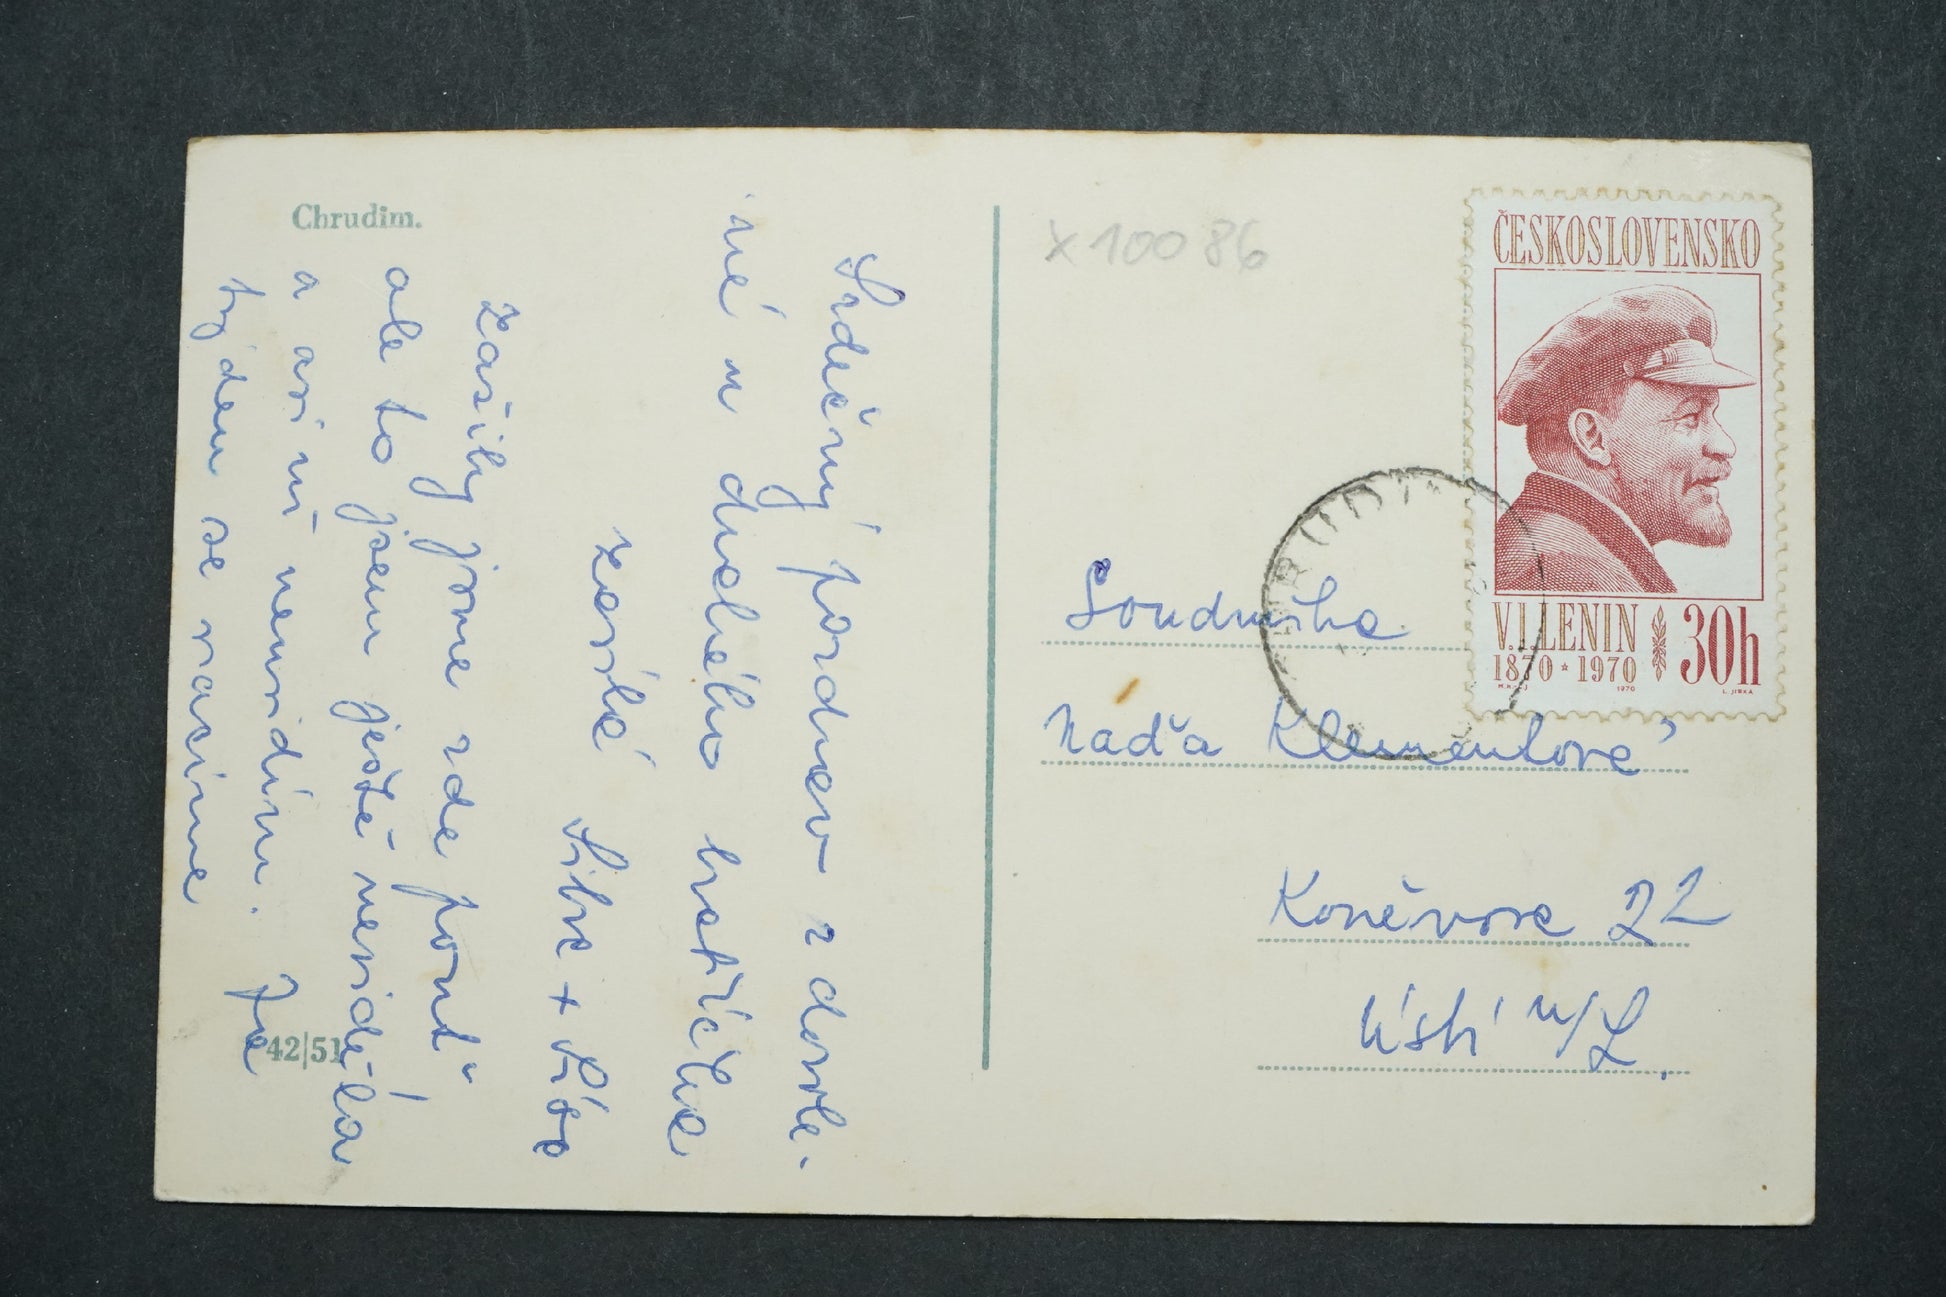 Chrudim.
Srdečný pozdrav z dovole-
né u druhého bratříčka
zasílá
Zažily jsme zde pouť
ale to jsem ještě neviděla
a asi už neuvidím. Za
týden se vracíme
42|51
X 10086
ČESKOSLOVENSKO
V.I.LENIN
1870 * 1970
30h
1970
L. JIRKA
Soudružka
Naďa Klementová
Koněvova 22
Ústí n/L.